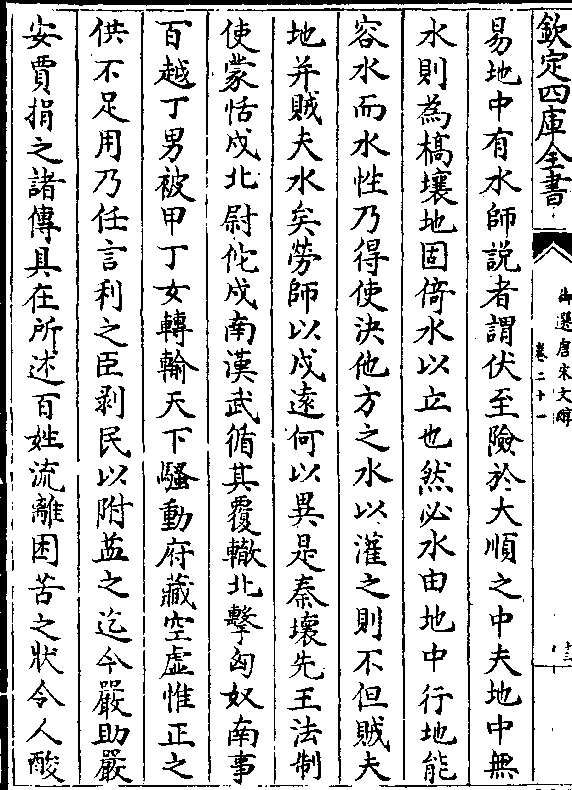 欽定四庫全書
御選唐宋文醇
卷二十一
十三
易地中有水師説者謂伏至險於大順之中夫地中無
水則為槁壤地固倚水以立也然必水由地中行地能
容水而水性乃得使決他方之水以灌之則不但賊夫
地并賊夫水矣勞師以戍逺何以異是秦壞先王法制
使蒙恬戍北尉佗戍南漢武循其覆轍北擊匈奴南事
百越丁男被甲丁女轉輸天下騷動府藏空虚惟正之
供不足用乃任言利之臣剥民以附益之迄今嚴助嚴
安賈捐之諸傳具在所述百姓流離困苦之狀令人酸